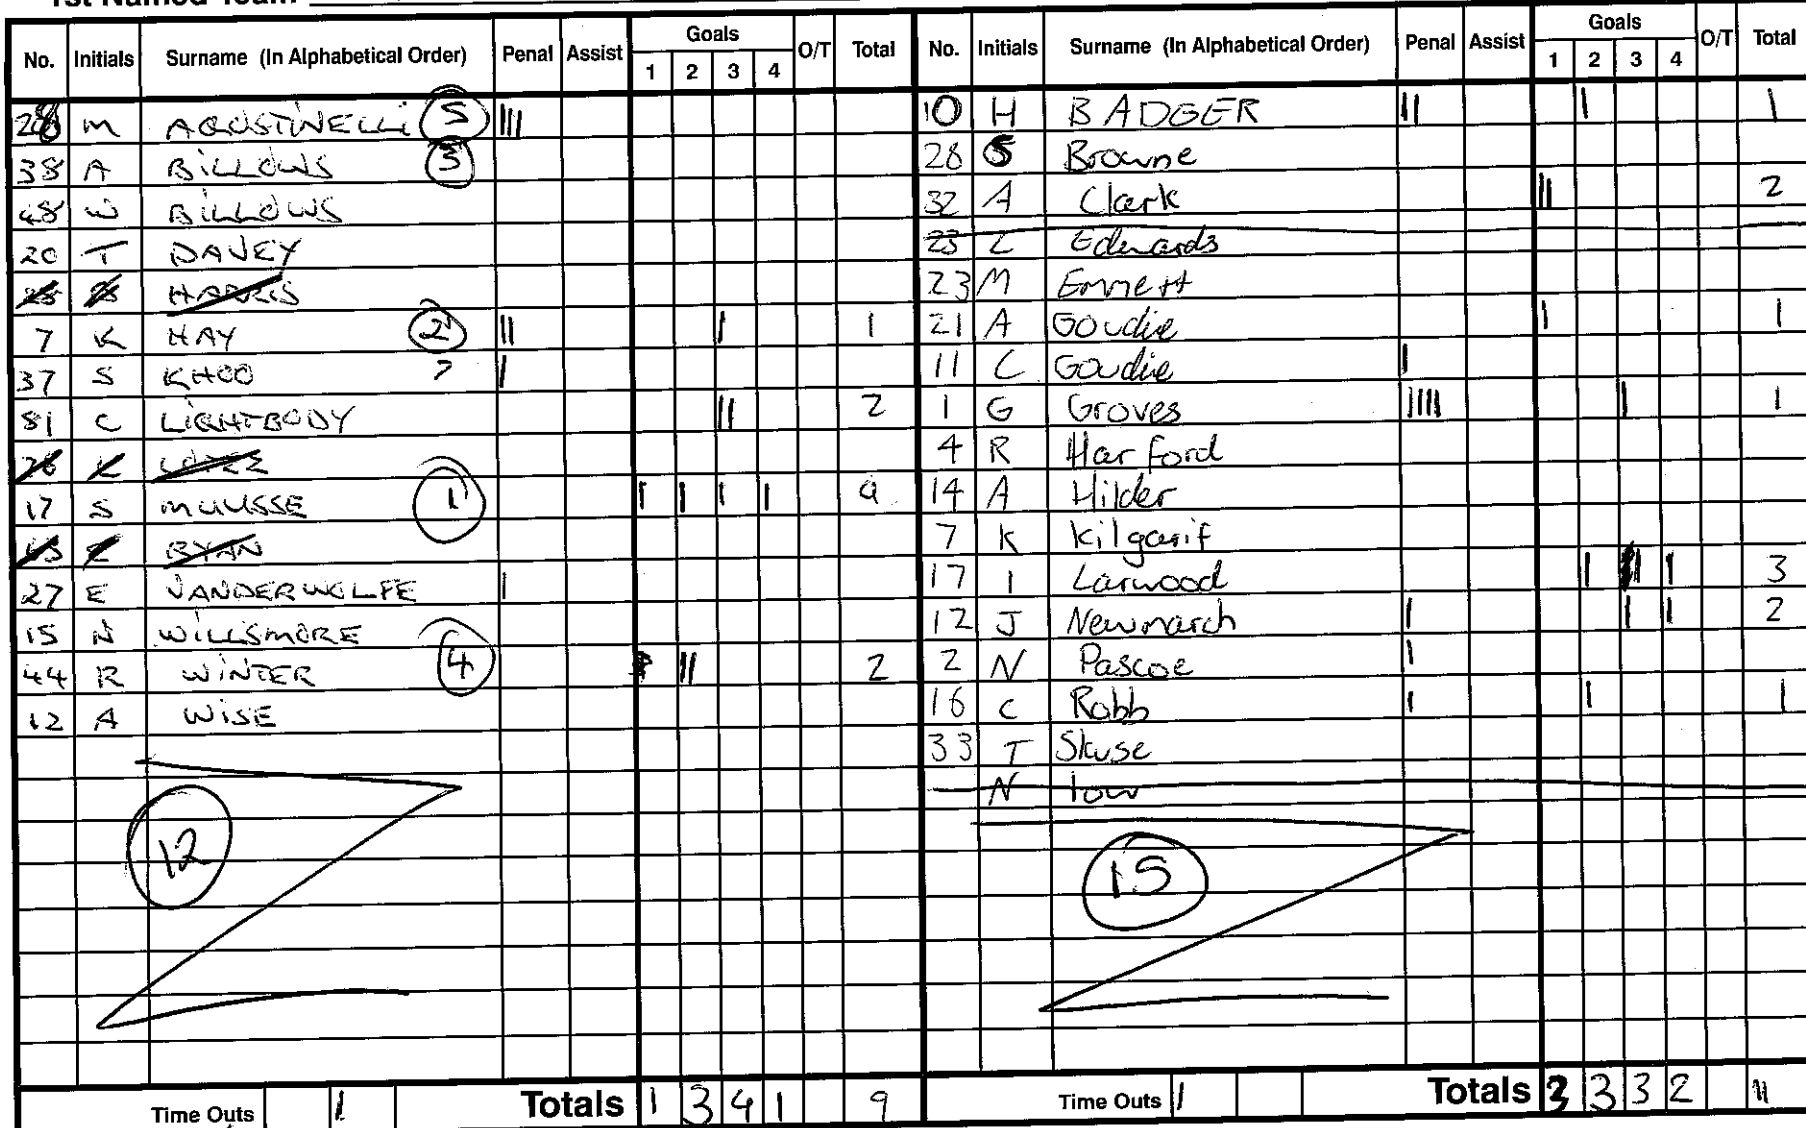 1st Named Team
No. Initials Surname (In Alphabetical Order) Penal Assist Goals 1 2 3 4 O/T Total
28 M AGOSTINELLI 5 |||
38 A BILLOWS 3
48 W BILLOWS
20 T DAVEY
HARRIS
7 K HAY 2 || | 1
37 S KHOO ? |
81 C LIGHTBODY || 2
26
17 S MUUSSE 1 | | | | 4
RYAN
27 E VANDERWOLFE |
15 N WILLSMORE
44 R WINTER 4 || 2
12 A WISE
12
Time Outs 1 Totals 1 3 4 1 9
No. Initials Surname (In Alphabetical Order) Penal Assist Goals 1 2 3 4 O/T Total
10 H BADGER || | 1
28 S Browne
32 A Clark || 2
23 L Edwards
23 M Emmett
21 A Goudie | 1
11 C Goudie |
1 G Groves |||| | 1
4 R Harford
14 A Hilder
7 K Kilgarif
17 I Larwood | | | 3
12 J Newmarch | | | 2
2 N Pascoe |
16 C Robb | | 1
33 T Skuse
N Tow
15
Time Outs 1 Totals 3 3 3 2 11